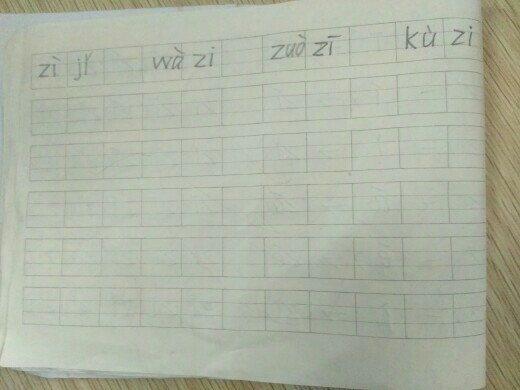 zì jǐ wà zi zuò zī kù zi